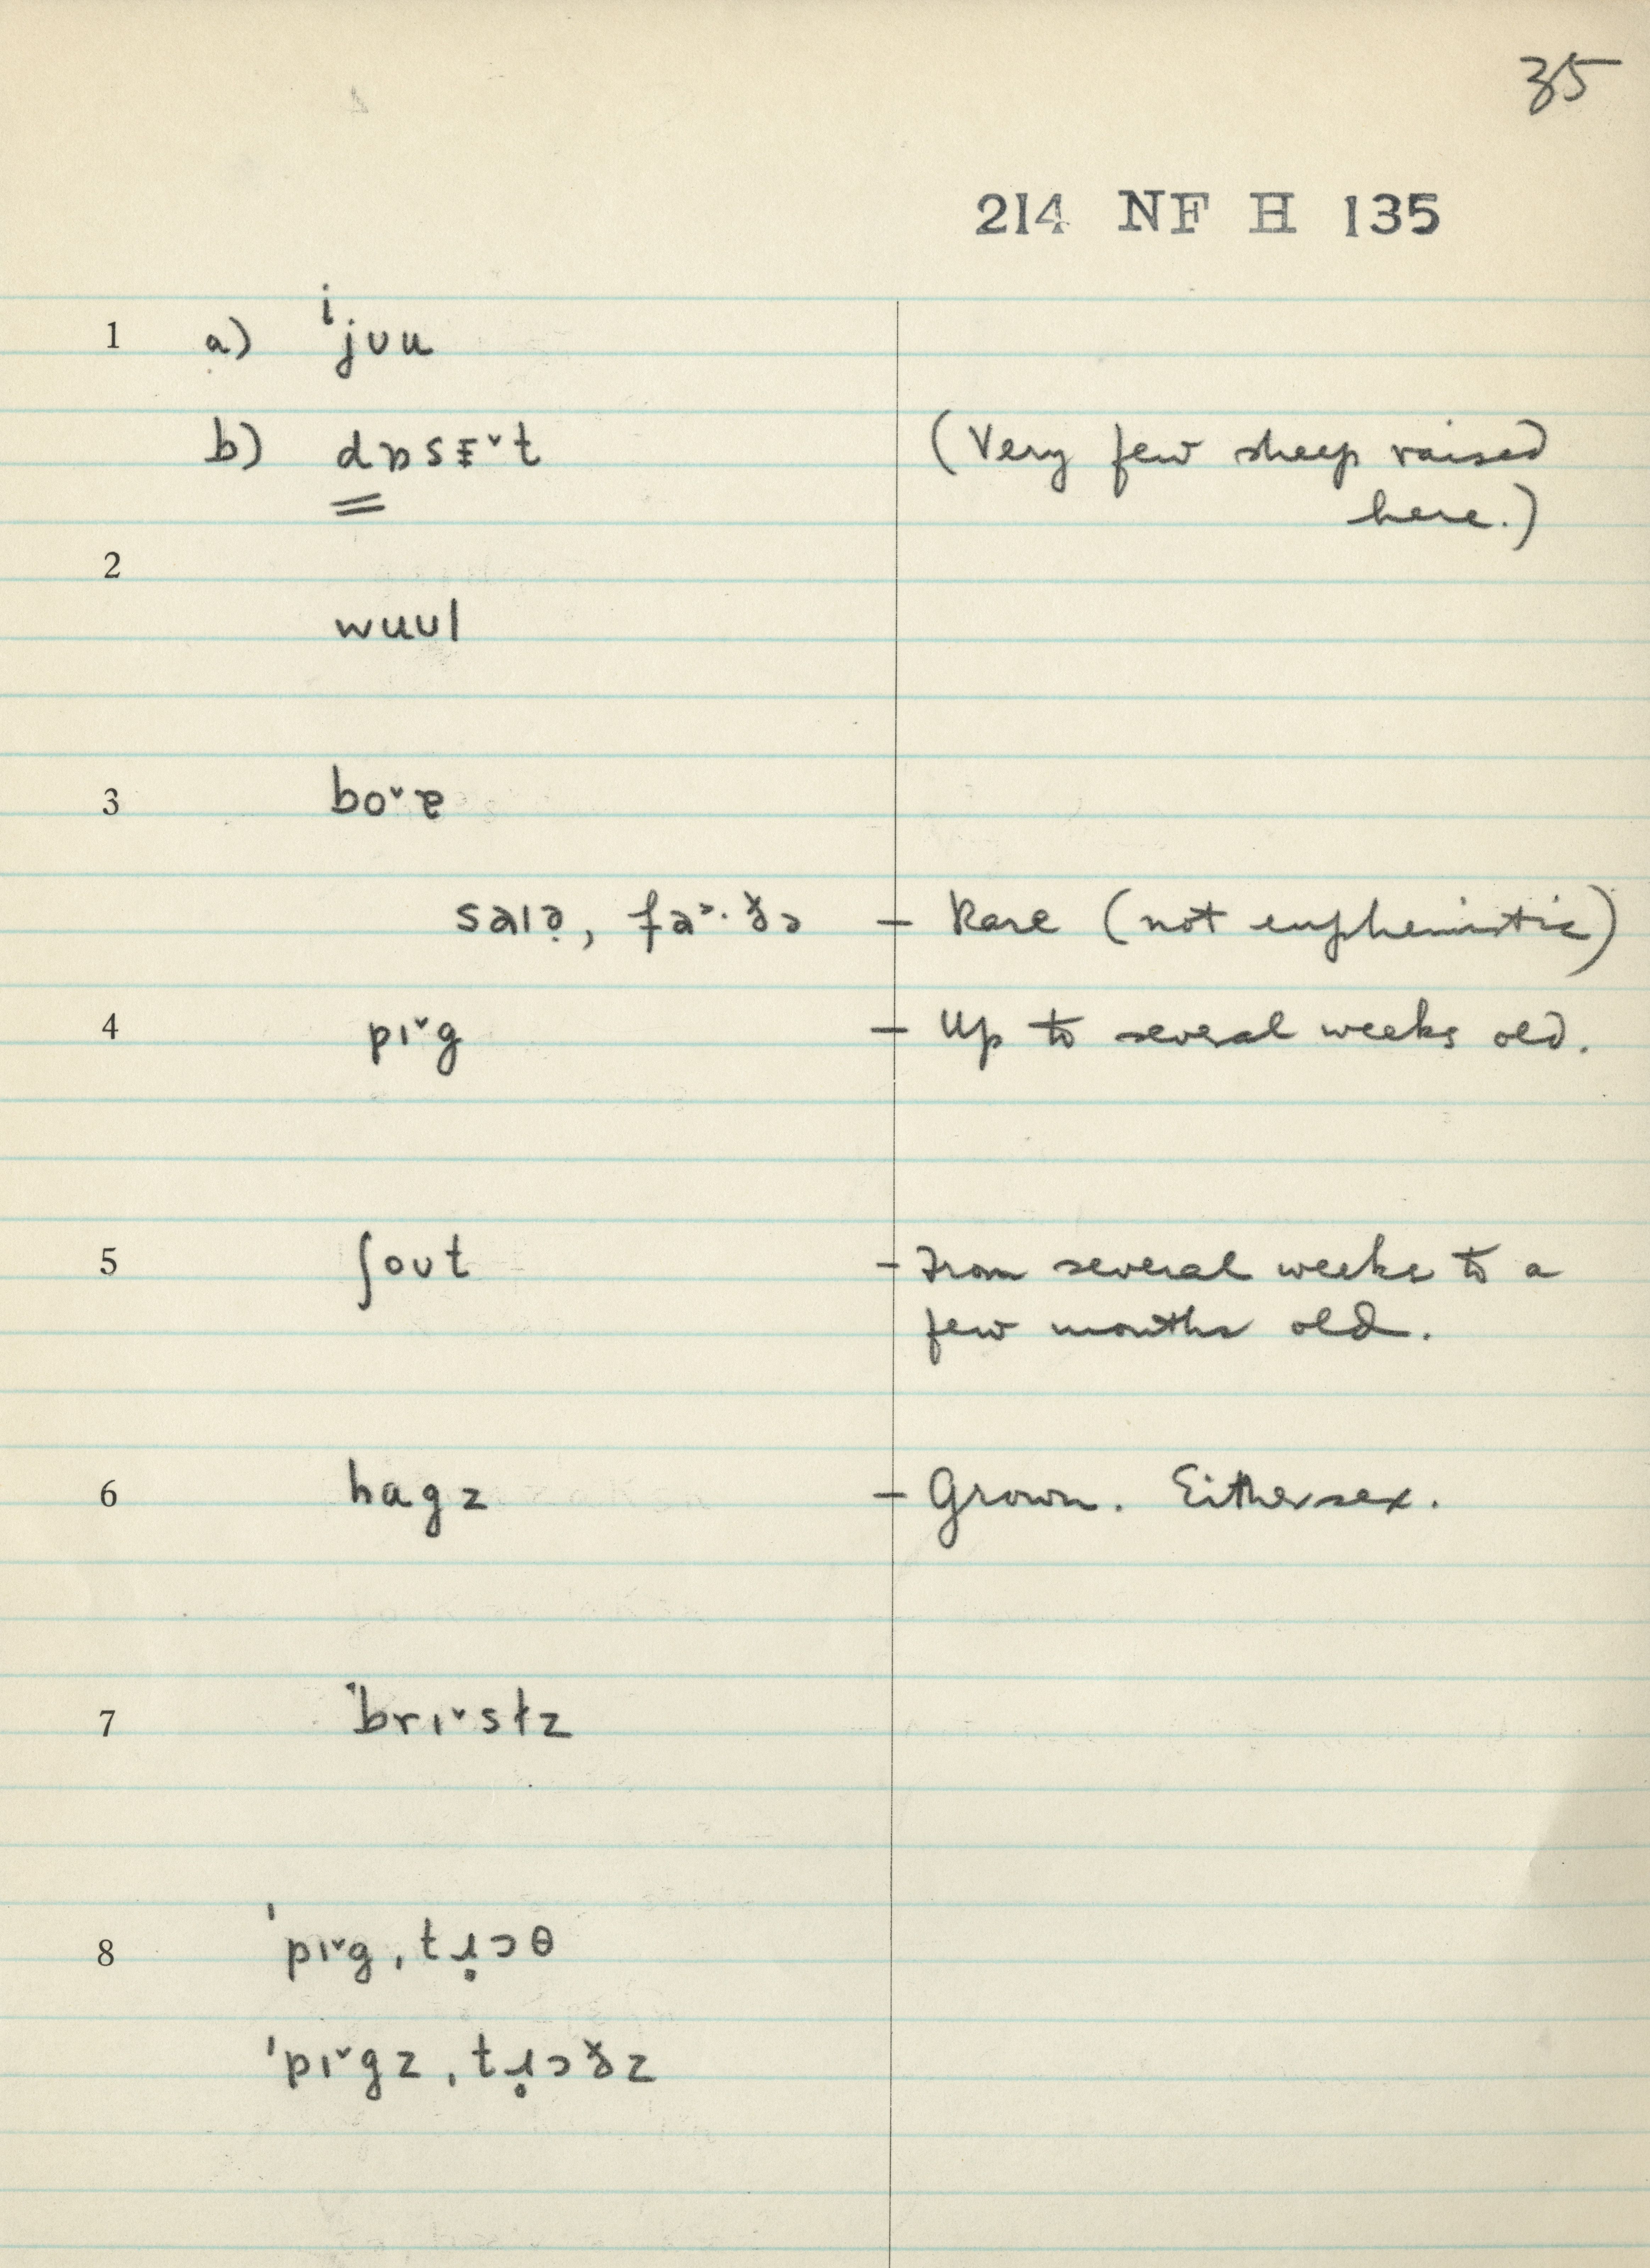 35
214 NF H 135
1 a) ⁱjʊu
b) dɒsɛ˅t (Very few sheep raised
here.)
2
wuʊl
3 bo˅ɐ
saɪə̣, fa˃·ðə – Rare (not euphemistic)
4 pɪ˅g – Up to several weeks old.
5 ʃoʊt – From several weeks to a
few months old.
6 hagz – Grown. Either sex.
7 ˈbrɪ˅sɫz
8 ˈpɪ˅g ˌtɹ̥ɔθ
ˈpɪ˅gz ˌtɹ̥ɔðz